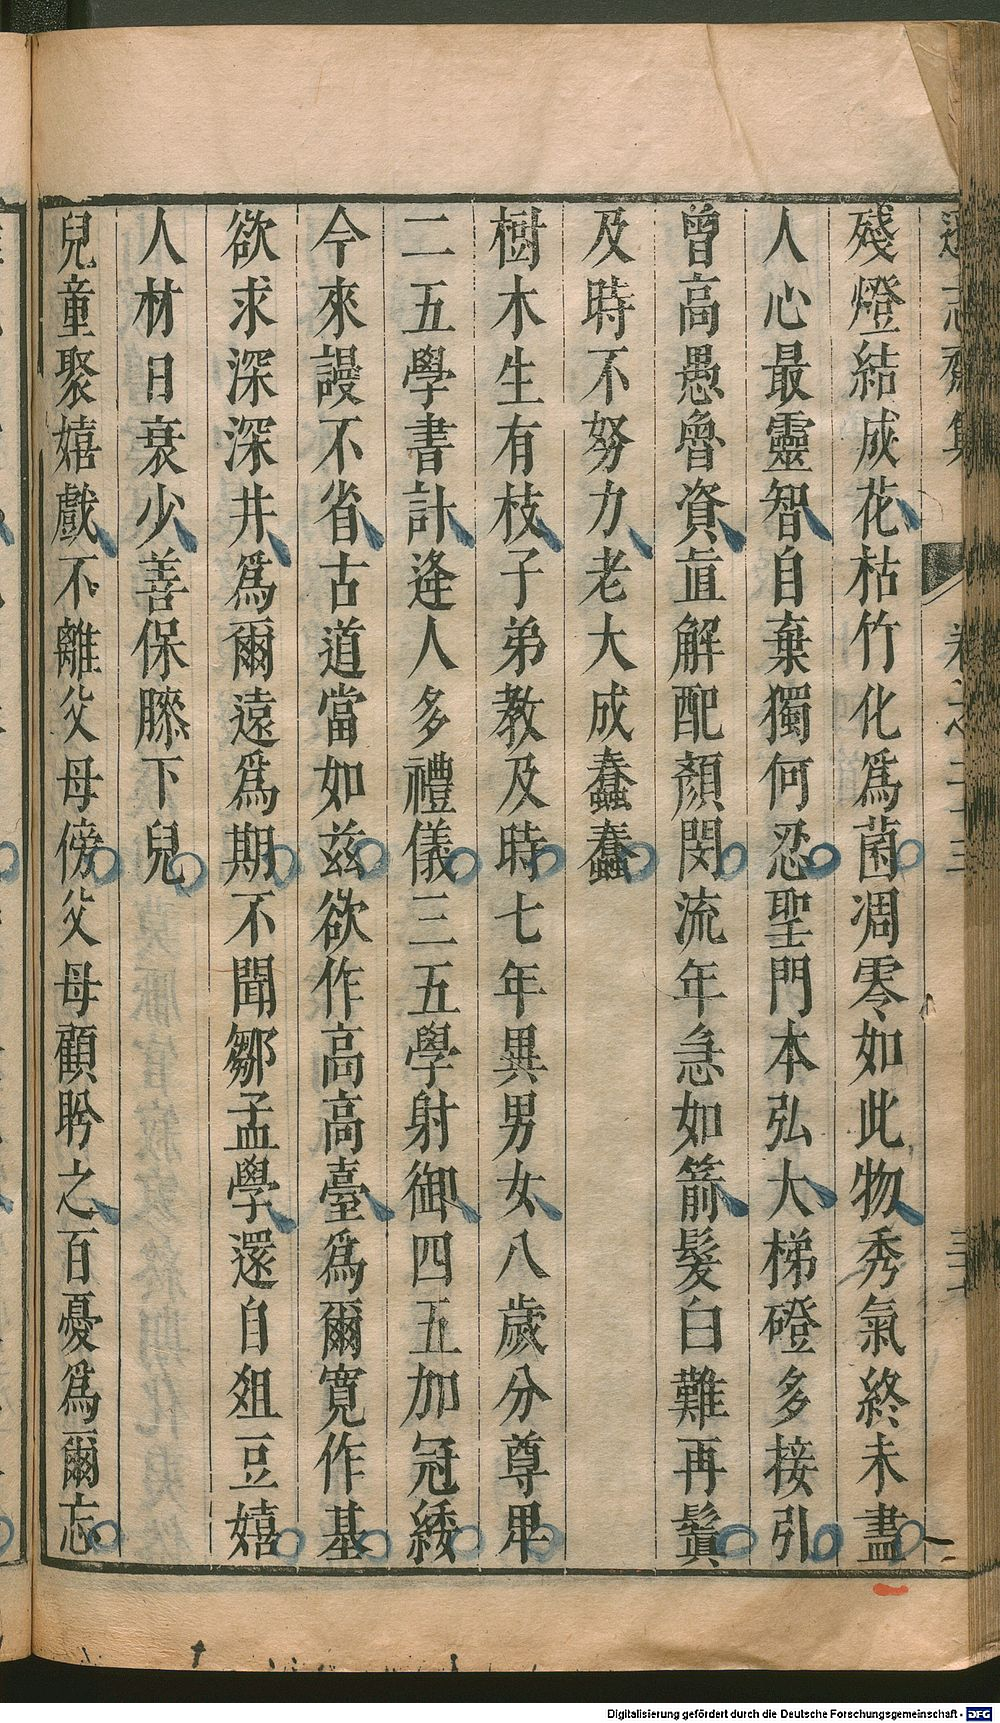 遜志齋集 卷之二十三 三十一
殘燈結成花枯竹化爲菌凋零如此物秀氣終未盡
人心最靈智自棄獨何忍聖門本弘大梯磴多接引
曾高愚魯資直解配顏閔流年急如箭髮白難再鬒
及時不努力老大成蠢蠢
樹木生有枝子弟教及時七年異男女八歲分尊卑
二五學書計逢人多禮儀三五學射御四五加冠緌
今來謾不省古道當如兹欲作高高臺爲爾寬作基
欲求深深井爲爾遠爲期不聞鄒孟學還自俎豆嬉
人材日衰少善保膝下兒
兒童聚嬉戲不離父母傍父母顧盻之百憂爲爾忘
Digitalisierung gefördert durch die Deutsche Forschungsgemeinschaft - DFG